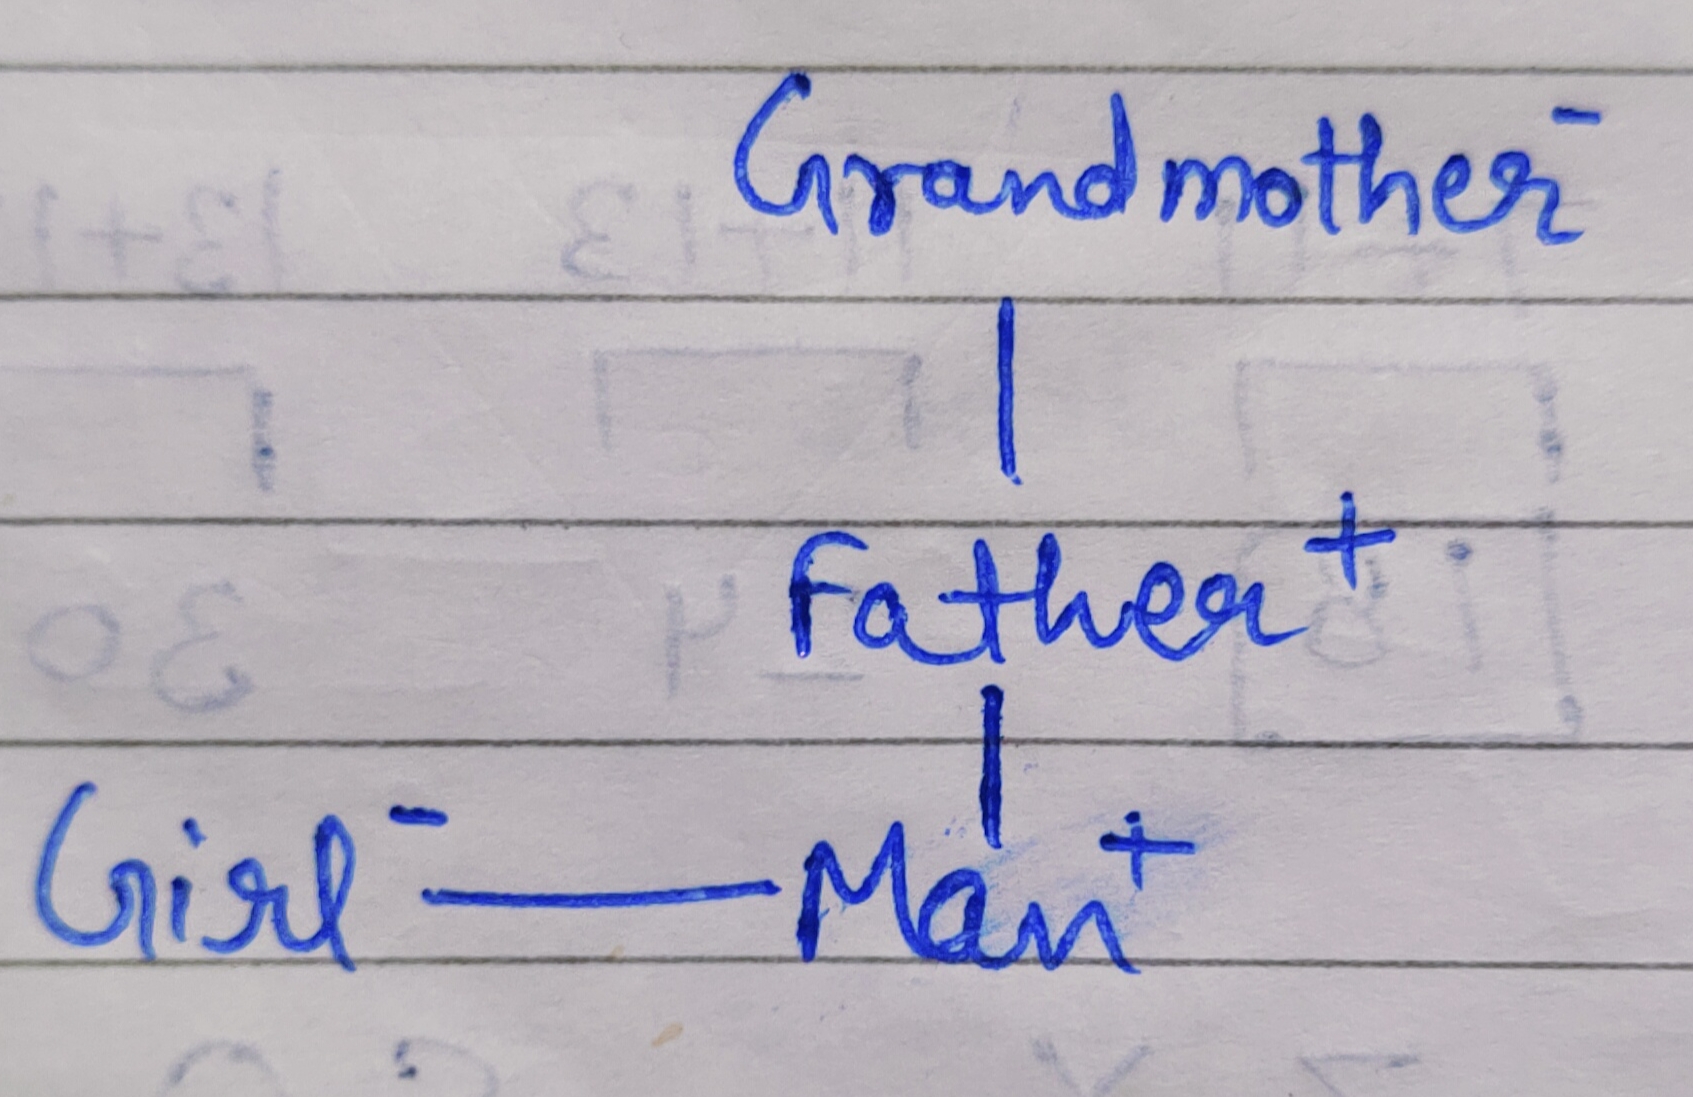 Grandmother -
Father +
Girl - — Man +